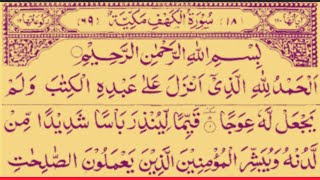 (١٨) سُوْرَةُ الْكَهْفِ مَكِّيَّةٌ (٦٩)
بِسْمِ اللهِ الرَّحْمٰنِ الرَّحِيْمِ
اَلْحَمْدُ لِلّٰهِ الَّذِيْٓ اَنْزَلَ عَلٰى عَبْدِهِ الْكِتٰبَ وَلَمْ
يَجْعَلْ لَّهٗ عِوَجًا قَيِّمًا لِّيُنْذِرَ بَاْسًا شَدِيْدًا مِّنْ
لَّدُنْهُ وَيُبَشِّرَ الْمُؤْمِنِيْنَ الَّذِيْنَ يَعْمَلُوْنَ الصّٰلِحٰتِ